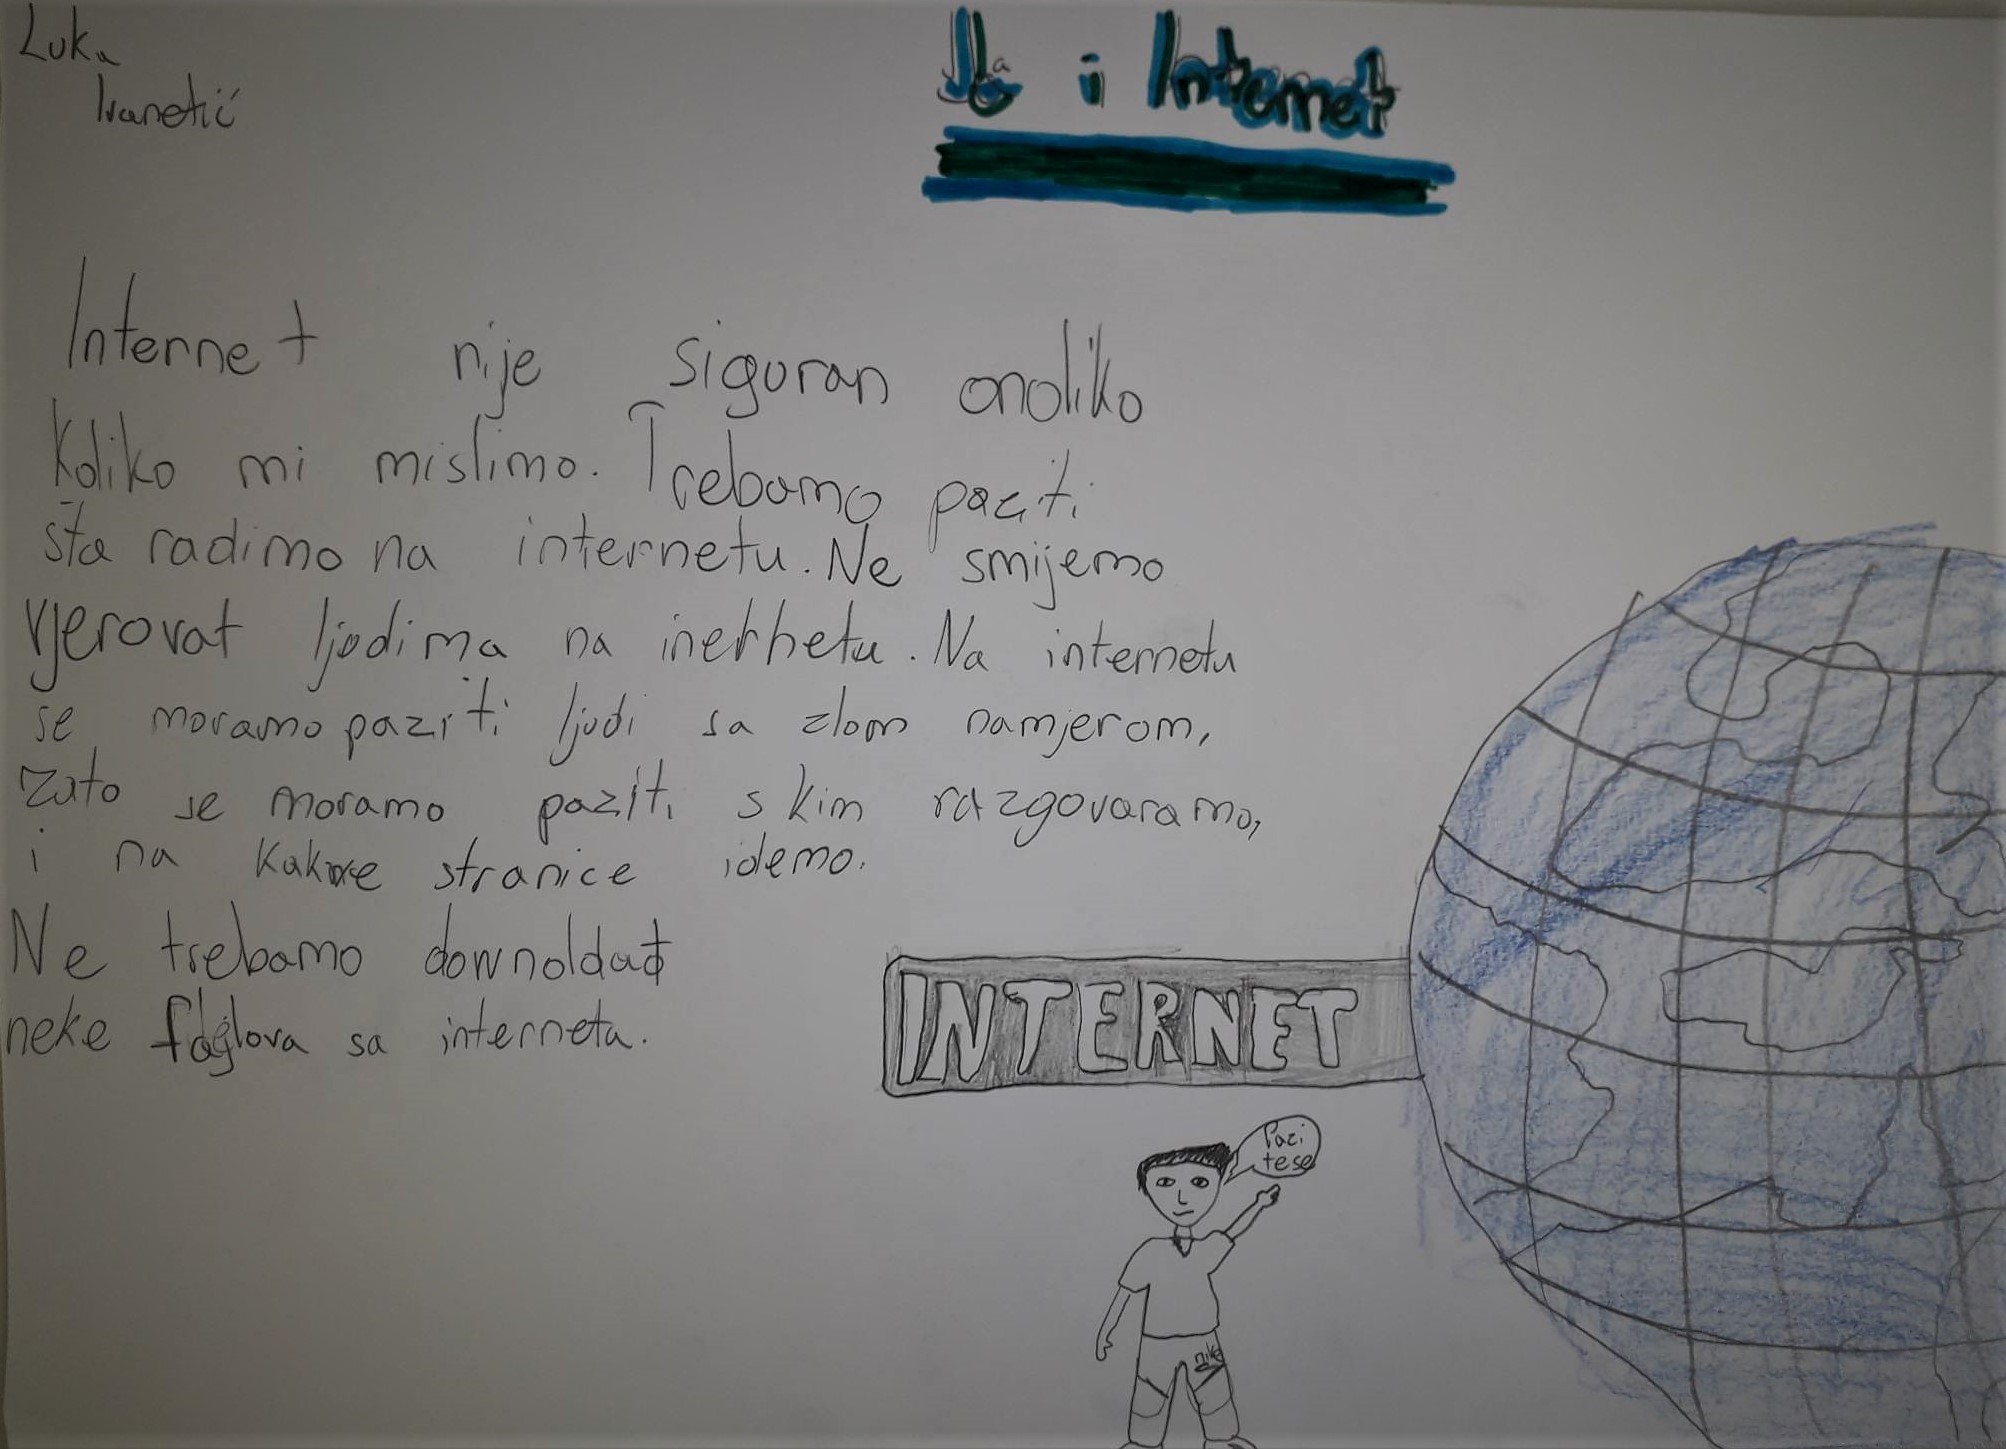 Luka
Ivanetić
Ja i Internet
Internet nije siguran onoliko
Koliko mi mislimo. Trebamo paziti
šta radimo na internetu. Ne smijemo
vjerovat ljudima na inerhetu. Na internetu
se moramo paziti ljudi sa zlom namjerom,
zato se moramo paziti s kim razgovaramo,
i na kakve stranice idemo.
Ne trebamo downoldat
neke fajlova sa interneta.
INTERNET
Pazi
te se
nike